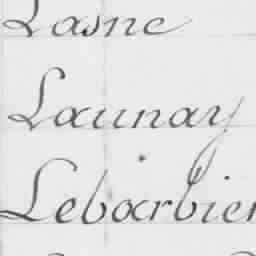 Lasne
Launay
Lebarbier